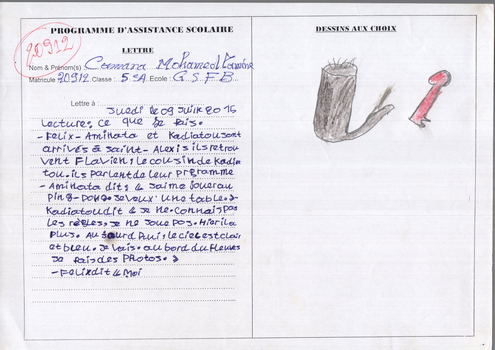 PROGRAMME D'ASSISTANCE SCOLAIRE
DESSINS AUX CHOIX
20912
LETTRE
Nom & Prénom(s) Camara Mohamed Lamine
Matricule 20912 Classe : 5.SA. Ecole : G.S.F.B.
Lettre à :
Juedi le 09 Juin 2016
Lecture, ce que je fais.
- Felix - Aminata et Kadiatou sont
arrivés à Saint-Alexis ils retrou
vent Flaviens le cousin de Kadia
tou. ils parlent de leur prgramme
- Aminata dit « J'aime jouer au
ping-pong. Je veux une table. »
Kadiatou dit « Je ne connais pas
les règles. je ne joue pas. Hier il a
plus. Aujourd'hui, le ciel est clair
et bleu. Je vais au bord du fleuve
Je fais des photos. »
- Felix dit « Moi